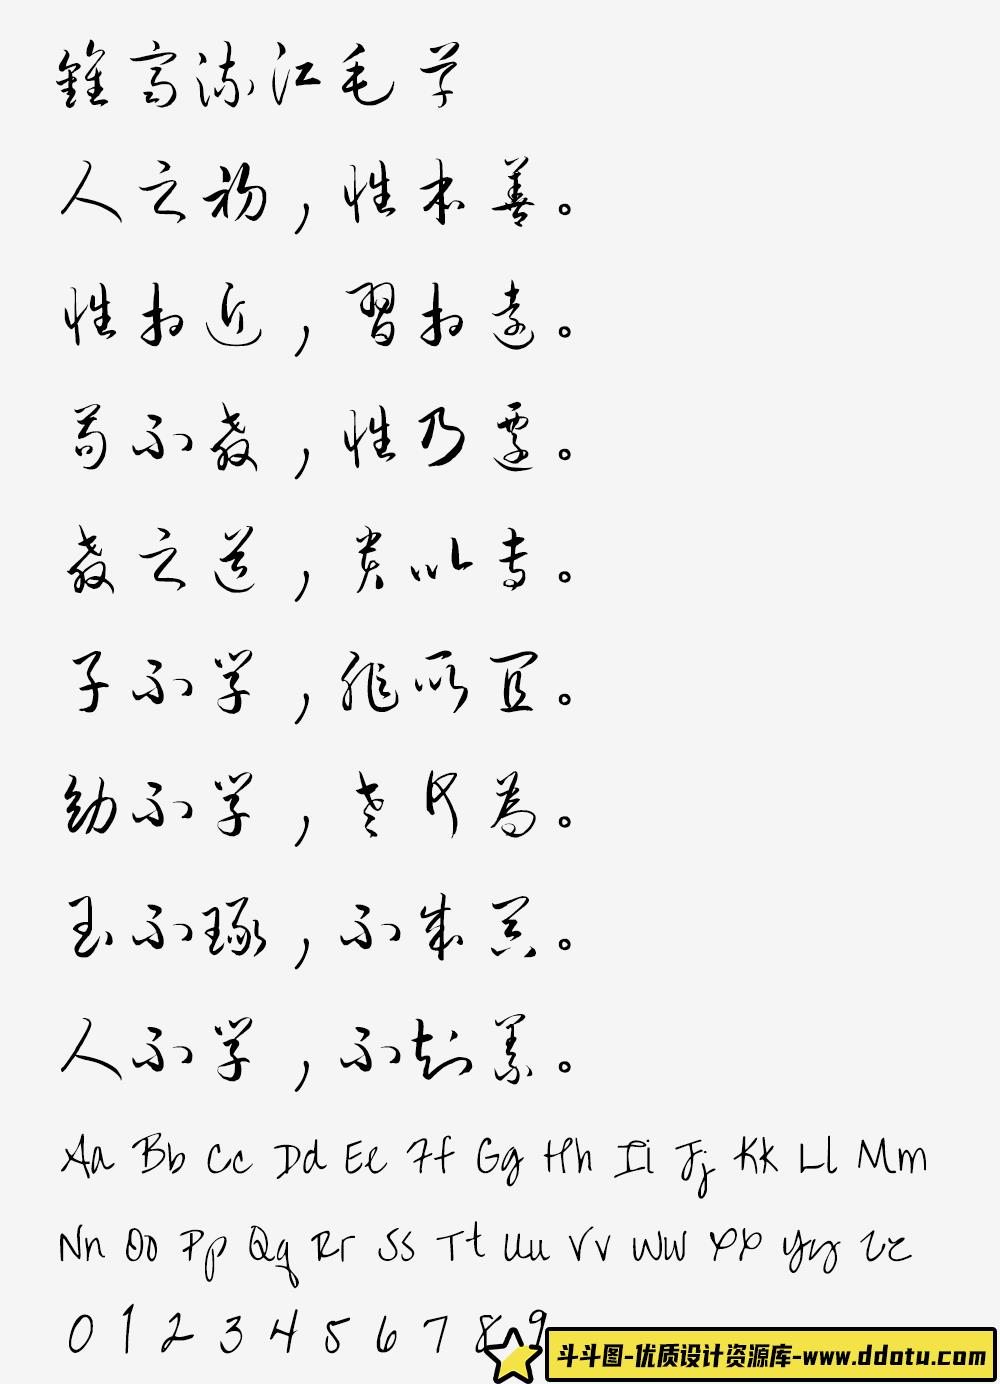 鐘齊流江毛草
人之初，性本善。
性相近，習相遠。
苟不教，性乃遷。
教之道，貴以專。
子不学，非所宜。
幼不学，老何為。
玉不琢，不成器。
人不学，不知義。
Aa Bb Cc Dd Ee Ff Gg Hh Ii Jj Kk Ll Mm
Nn Oo Pp Qq Rr Ss Tt Uu Vv Ww Xx Yy Zz
0 1 2 3 4 5 6 7 8 9
斗斗图-优质设计资源库-www.ddotu.com